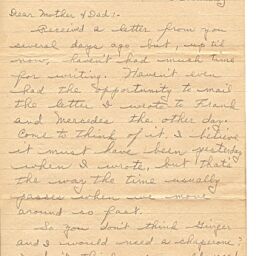 Dear Mother & Dad:-
Received a letter from you
several days ago but, up til
now, haven't had much time
for writing. Haven't even
had the opportunity to mail
the letter I wrote to Frank
and Mercedes the other day.
Come to think of it, I believe
it must have been yesterday
when I wrote, but that's
the way the time usually
passes when we move
around so fast.
So you don't think Ginger
and I would need a chaperone?